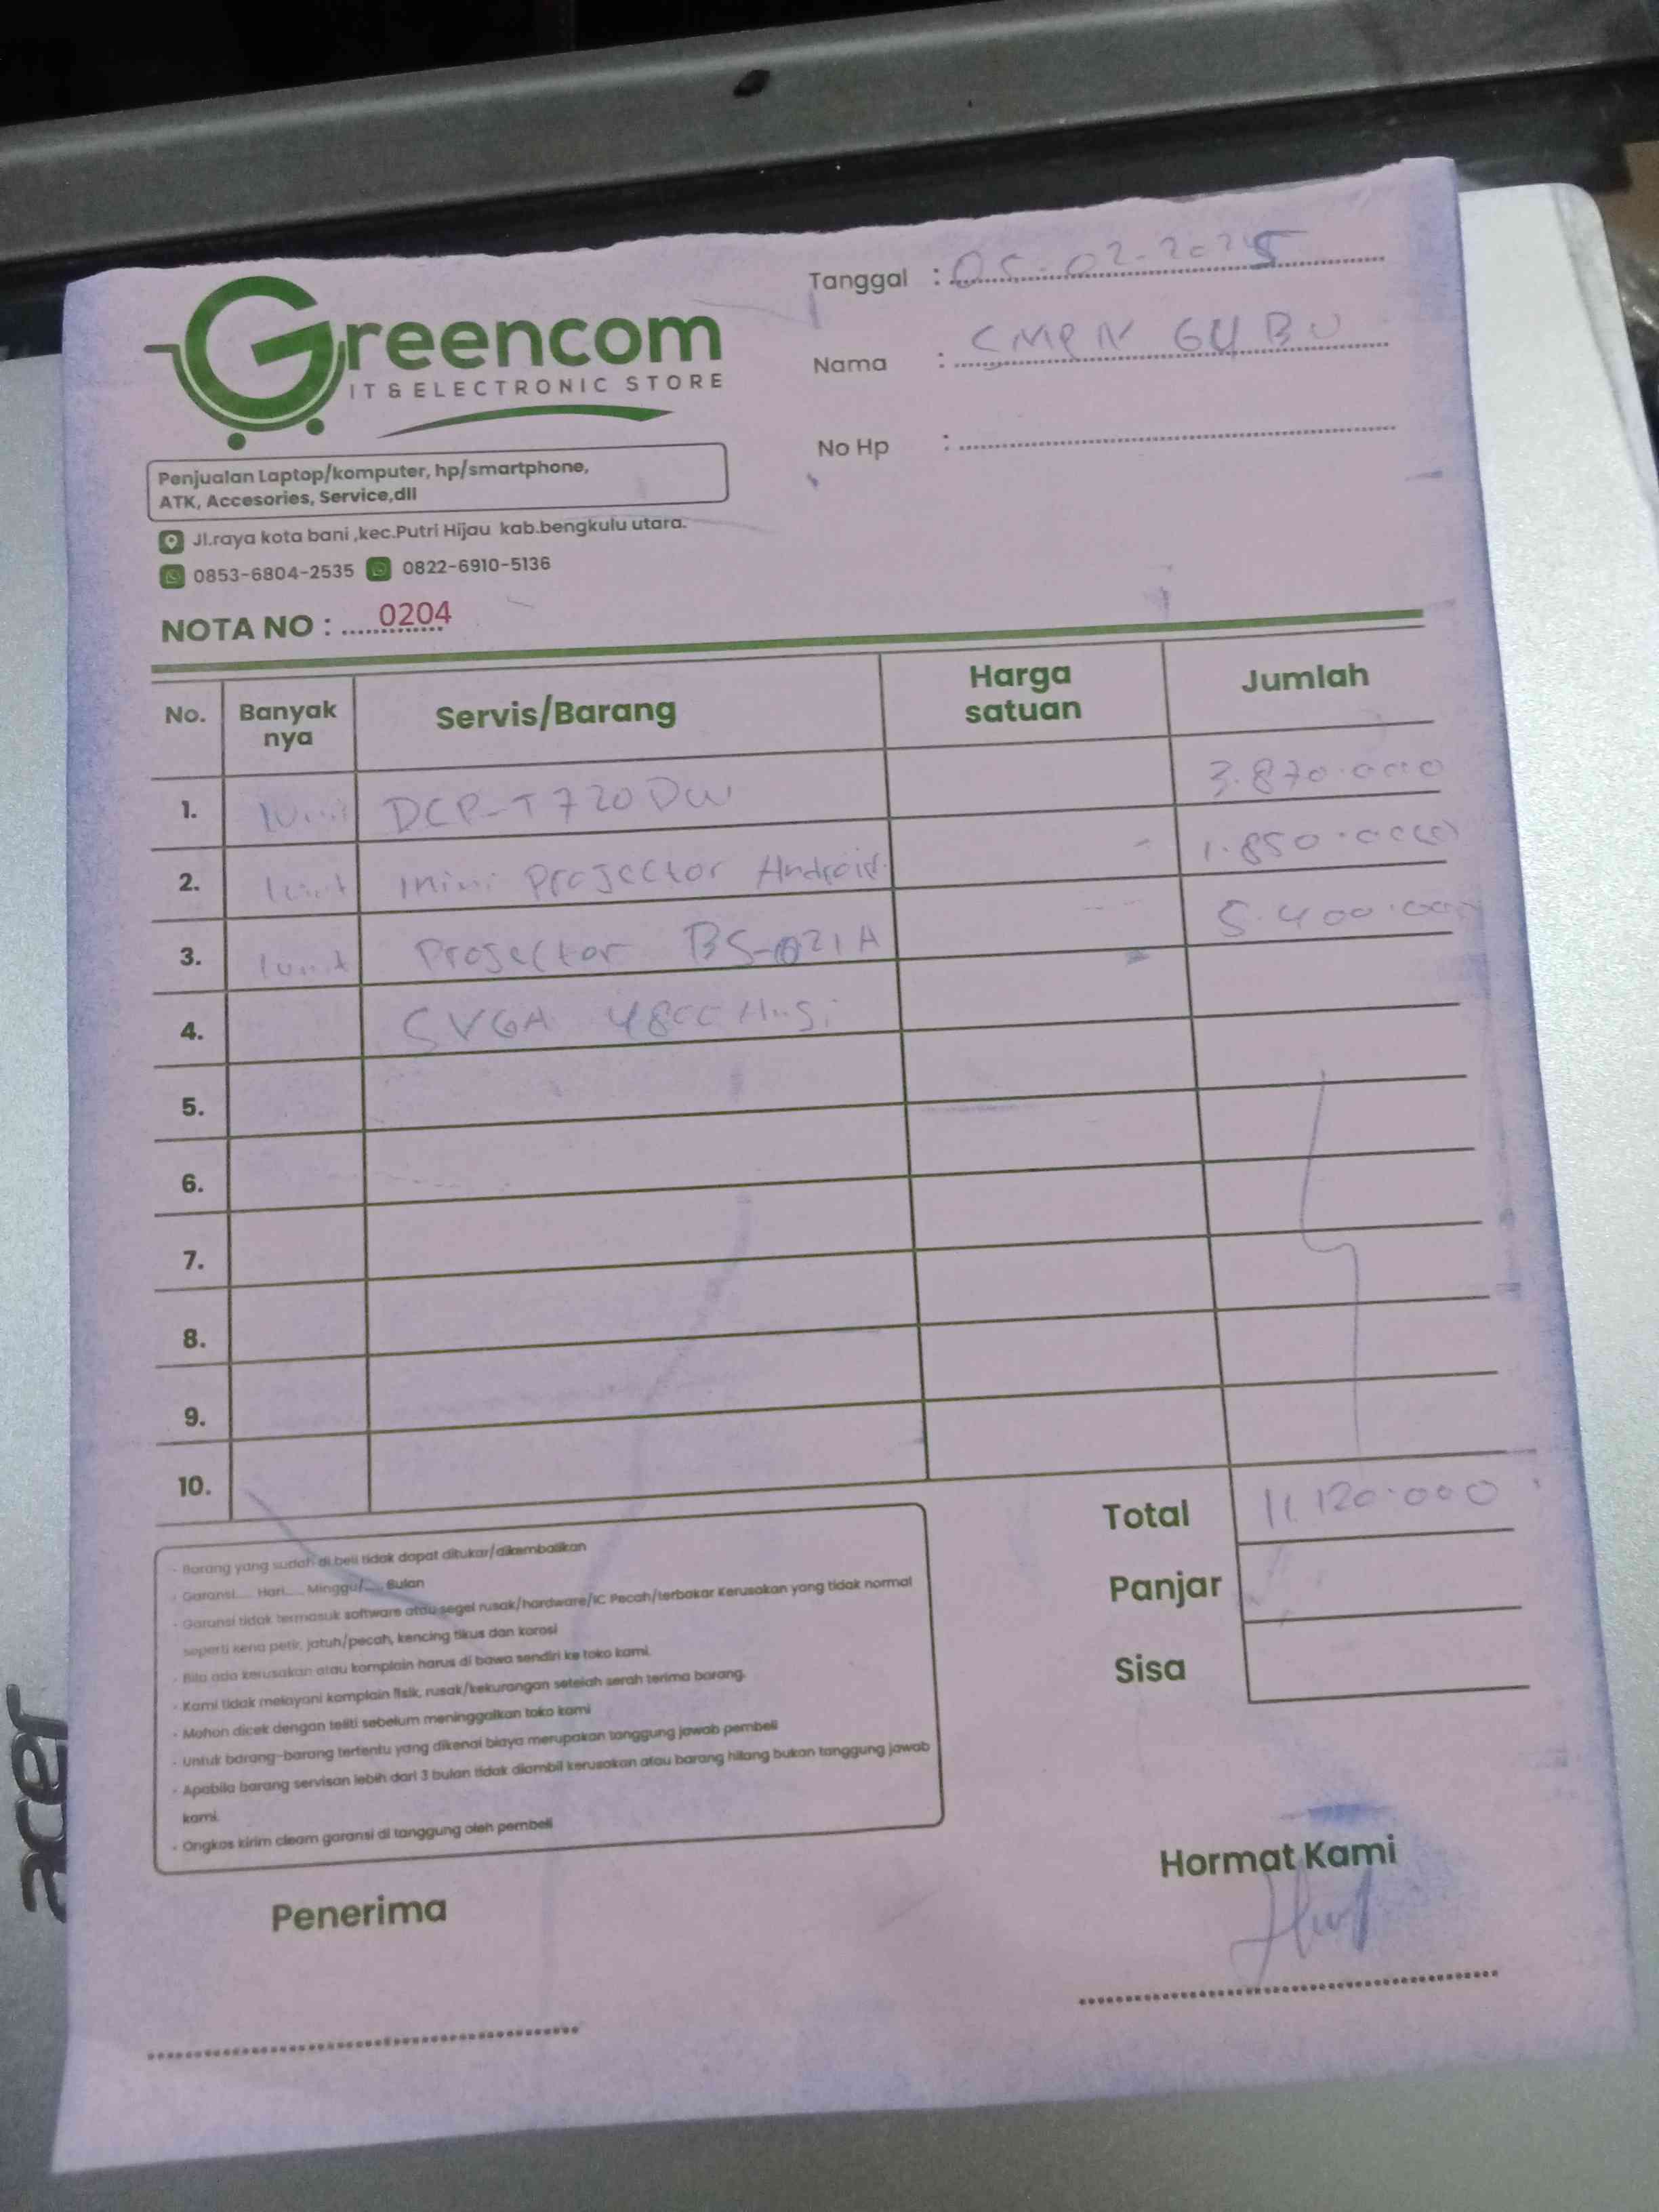 Greencom
IT & ELECTRONIC STORE
Penjualan Laptop/komputer, hp/smartphone,
ATK, Accesories, Service,dll
Jl.raya kota bani ,kec.Putri Hijau kab.bengkulu utara.
0853-6804-2535 0822-6910-5136
NOTA NO : 0204
Tanggal : 05-02-2025
Nama : SMPN 64 BU
No Hp :
No. Banyak nya Servis/Barang Harga satuan Jumlah
1. 1 unit DCP-T720DW 3.870.000
2. 1 unit Mini Projector Android 1.850.000
3. 1 unit Projector BS-021A 5.400.000
4. SVGA
5.
6.
7.
8.
9.
10.
Total 11.120.000
Panjar
Sisa
- Barang yang sudah di beli tidak dapat ditukar/dikembalikan
- Garansi.... Hari.... Minggu/.... Bulan
- Garansi tidak termasuk software atau segel rusak/hardware/IC Pecah/terbakar Kerusakan yang tidak normal
seperti kena petir, jatuh/pecah, kencing tikus dan korosi
- Bila ada kerusakan atau komplain harus di bawa sendiri ke toko kami.
- Kami tidak melayani komplain fisik, rusak/kekurangan setelah serah terima barang.
- Mohon dicek dengan teliti sebelum meninggalkan toko kami
- Untuk barang-barang tertentu yang dikenai biaya merupakan tanggung jawab pembeli
- Apabila barang servisan lebih dari 3 bulan tidak diambil kerusakan atau barang hilang bukan tanggung jawab
kami.
- Ongkos kirim cleam garansi di tanggung oleh pembeli
Penerima
Hormat Kami
acer